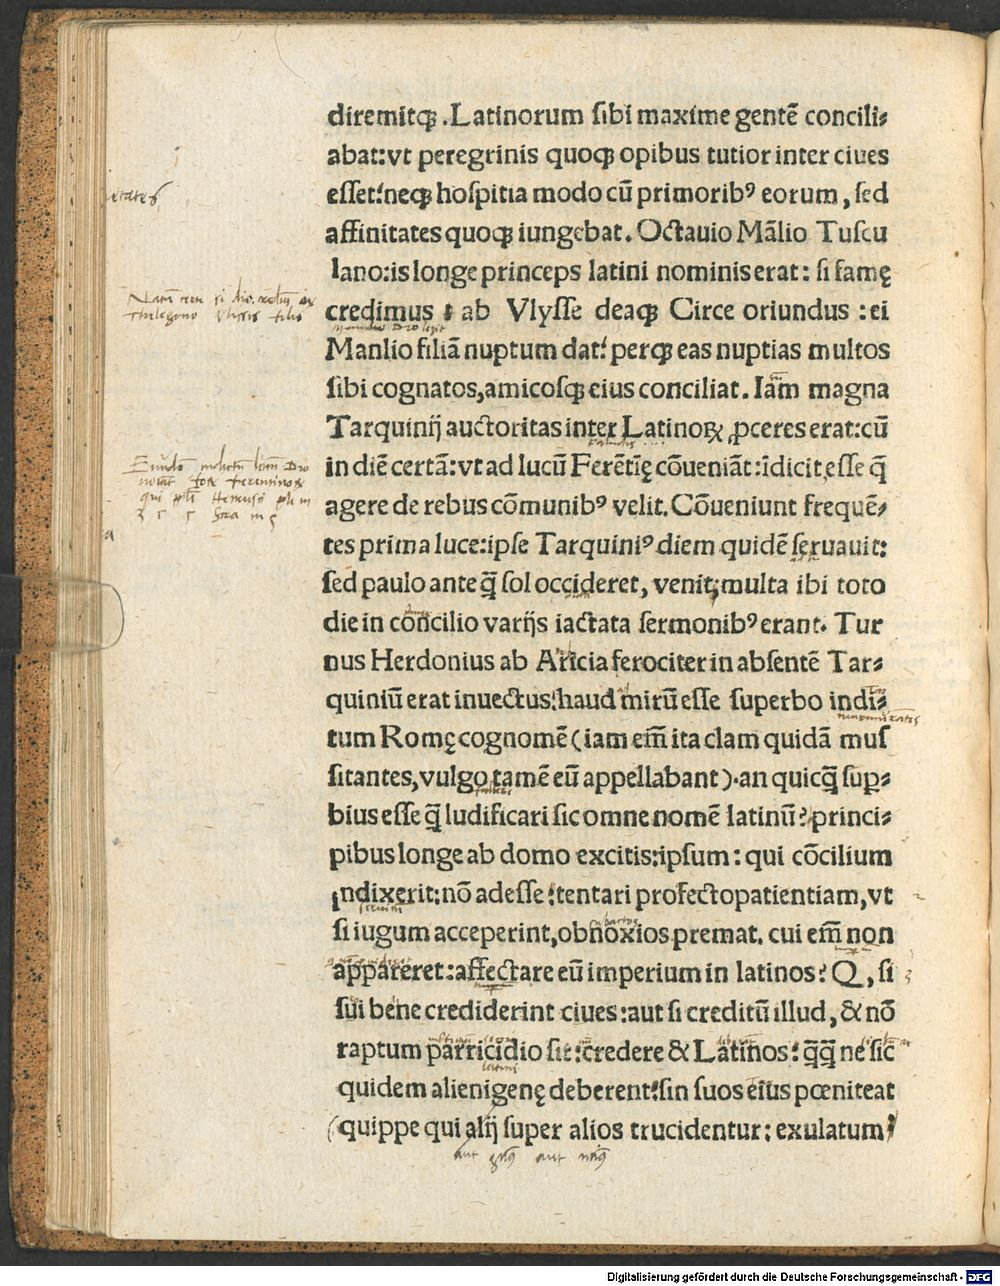 diremitqꝫ .Latinorum ſibi maxime gentē concili⸗
abat:vt peregrinis quoqꝫ opibus tutior inter ciues
eſſet:neqꝫ hoſpitia modo cū primoribꝰ eorum, ſed
affinitates quoqꝫ iungebat. Octauio Mālio Tuſcu
lano:is longe princeps latini nominis erat: ſi famę
credimus : ab Vlyſſe deaqꝫ Circe oriundus :ei
Manlio filiā nuptum dat: perqꝫ eas nuptias multos
ſibi cognatos,amicoſqꝫ eius conciliat. Iam magna
Tarquinij auctoritas inter Latinoꝝ ꝓceres erat:cū
in diē certā:vt ad lucū Ferētię cōueniāt :īdicit,eſſe q̄
agere de rebus cōmunibꝰ velit. Cōueniunt frequē⸗
tes prima luce:ipſe Tarquiniꝰ diem quidē ſeruauit:
ſed paulo ante q̄ ſol occideret, venit;multa ibi toto
die in concilio varijs iactata ſermonibꝰ erant. Tur
nus Herdonius ab Aricia ferociter in abſentē Tar⸗
quiniū erat inuectus:haud mirū eſſe ſuperbo indi⸗
tum Romę cognomē (iam em̄ ita clam quidā muſ
ſitantes,vulgo tamē eū appellabant).an quicq̄ ſuꝑ⸗
bius eſſe q̄ ludificari ſic omne nomē latinū? princi⸗
pibus longe ab domo excitis:ipſum: qui cōcilium
indixerit:nō adeſſe:tentari profecto patientiam,vt
ſi iugum acceperint,obnoxios premat. cui em̄ non
appareret:affectare eū imperium in latinos? Q, ſi
ſui bene crediderint ciues:aut ſi creditū illud, & nō
raptum parricidio ſit:credere & Latinos: q̄q̄ ne ſic
quidem alienigenę deberent:ſin ſuos eius pœniteat
(quippe qui alij ſuper alios trucidentur: exulatum
Digitalisierung gefördert durch die Deutsche Forschungsgemeinschaft - DFG